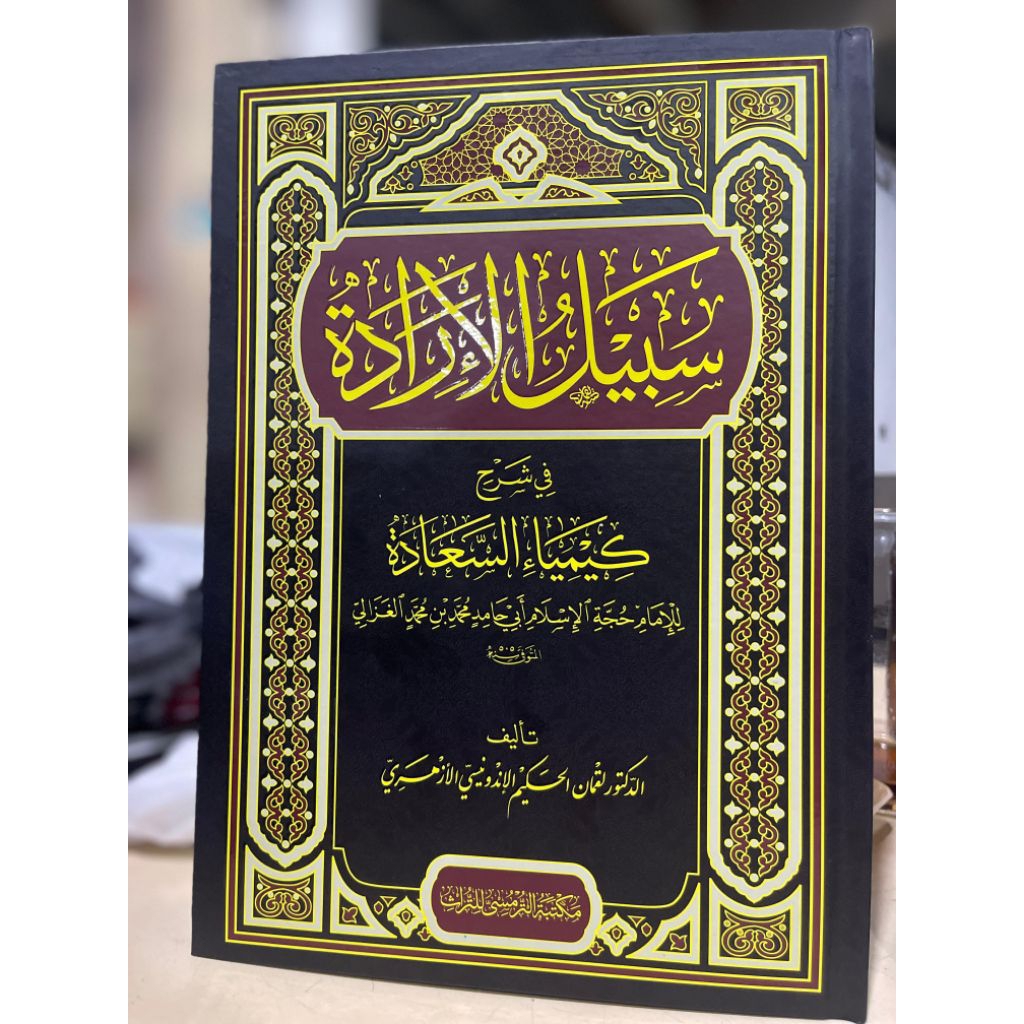 سَبِيْلُ الْإِرَادَةُ
فِي شَرْحِ
كِيْمِيَاءِ السَّعَادَةْ
لِلْإِمَامِ حُجَّةِ الْإِسْلَامِ أَبِي حَامِدٍ مُحَمَّدِ بْنِ مُحَمَّدٍ الْغَزَالِيّ
المتوفى سنة ٥٠٥ھ
تأليف
الدكتور لقمان الحكيم الإندونيسي الأزهري
مكتبة الترمسي للتراث